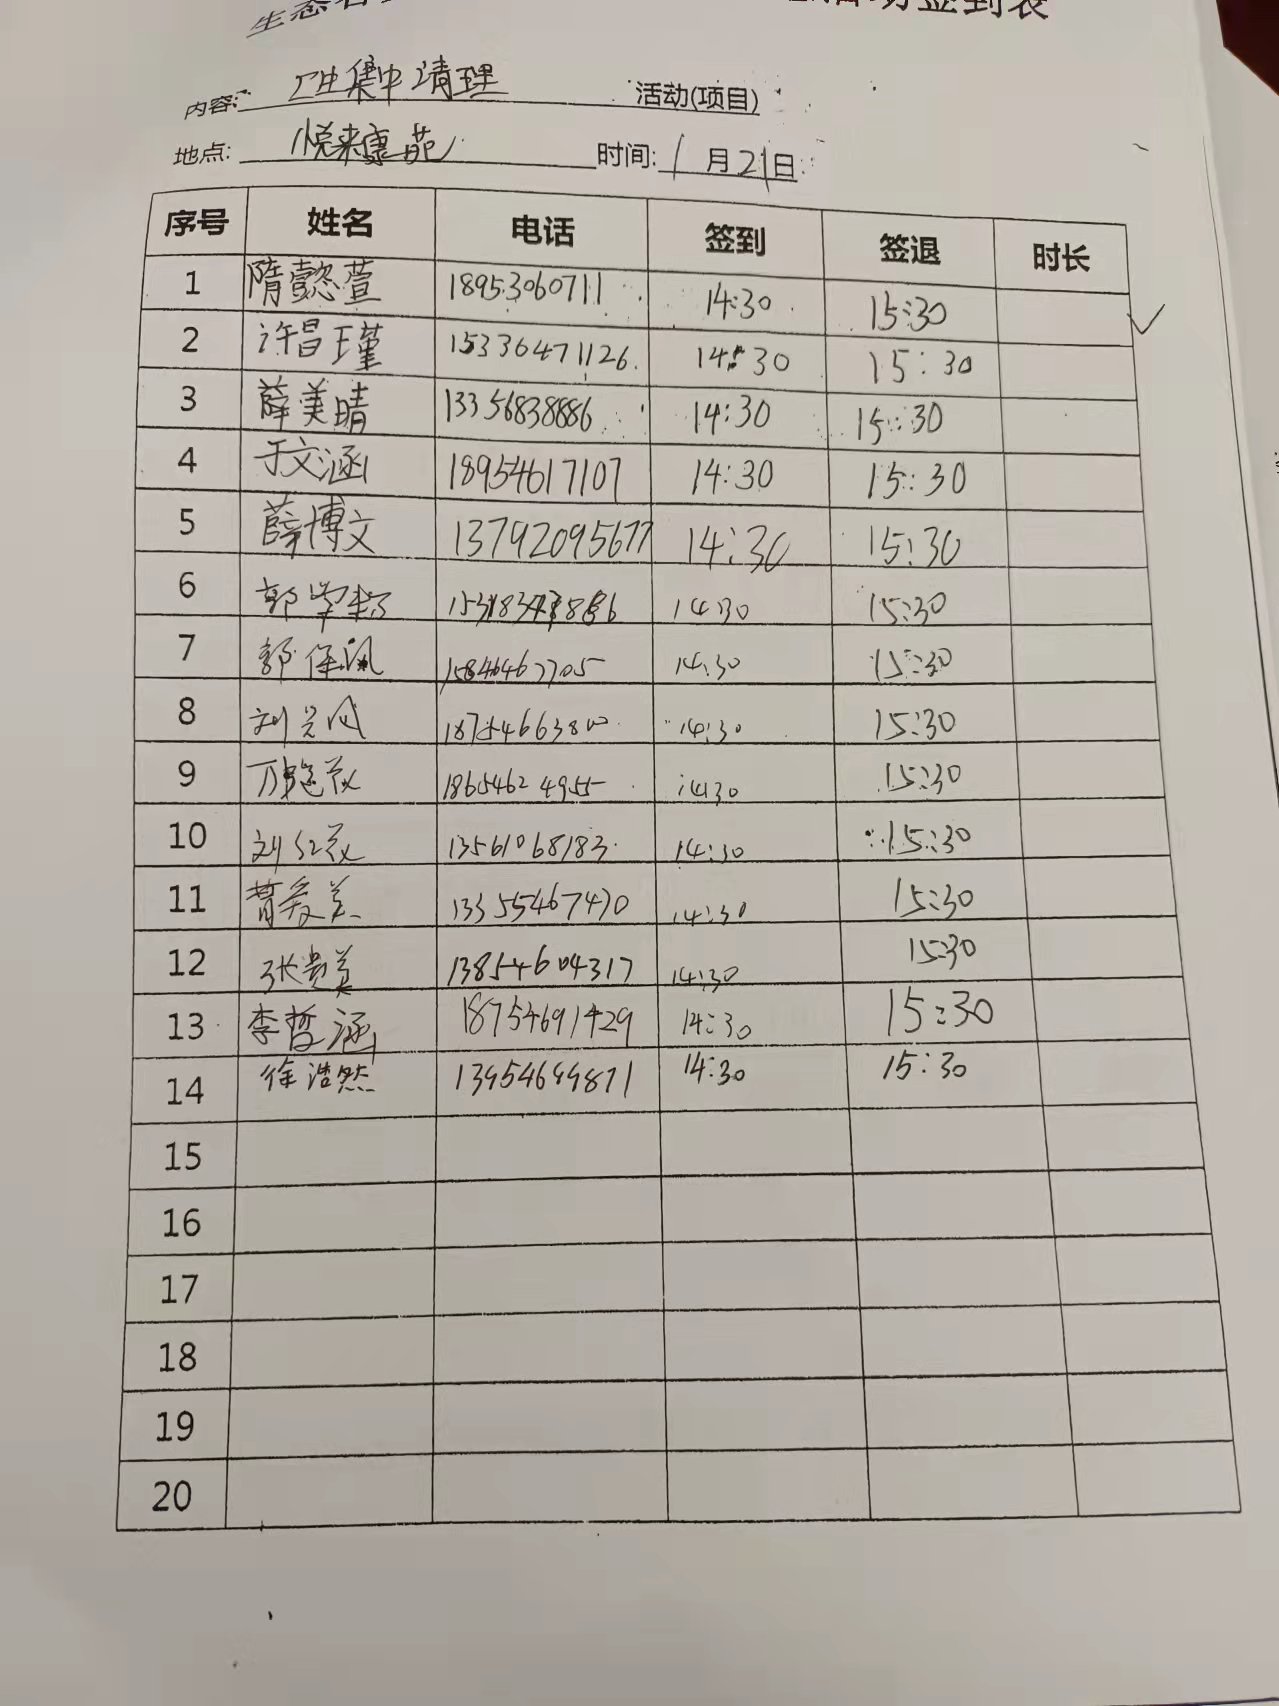 活动签到表
内容: 卫生集中清理 活动(项目)
地点: 悦来康苑 时间: 1月21日
序号 姓名 电话 签到 签退 时长
1 隋懿萱 18953060711 14:30 15:30
2 许昌瑾 15336471126 14:30 15:30
3 薛美晴 13356838886 14:30 15:30
4 于文涵 18954617107 14:30 15:30
5 薛博文 13792095677 14:30 15:30
6 14:30 15:30
7 15846467705 14:30 15:30
8 14:30 15:30
9 18654624955 14:30 15:30
10 刘红蕊 13561068183 14:30 15:30
11 曹秀美 13355467470 14:30 15:30
12 张贵美 13854604317 14:30 15:30
13 李哲涵 18754691429 14:30 15:30
14 徐浩然 13954699871 14:30 15:30
15
16
17
18
19
20